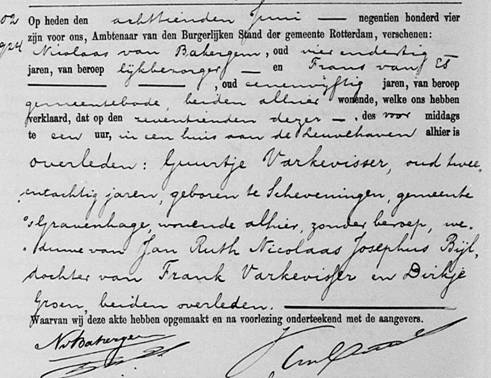 Op heden den achttienden Juni — negentien honderd vier
zijn voor ons, Ambtenaar van den Burgerlijken Stand der gemeente Rotterdam, verschenen:
Nicolaas van Bakergem, oud vier en dertig —
jaren, van beroep lijkbezorger — en Frans van Es
— —, oud een en vijftig jaren, van beroep
gemeentebode, beiden alhier wonende, welke ons hebben
verklaard, dat op den zeventienden dezer —, des voor middags
te een uur, in een huis aan de Leuvehaven alhier is
overleden: Guurtje Varkevisser, oud twee
entachtig jaren, geboren te Scheveningen, gemeente
's Gravenhage, wonende alhier, zonder beroep, we-
duwe van Jan Ruth Nicolaas Josephus Bijl,
dochter van Frank Varkevisser en Dirkje
Groen, beiden overleden. —
Waarvan wij deze akte hebben opgemaakt en na voorlezing onderteekend met de aangevers.
N v Bakergem